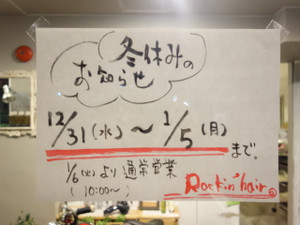 冬休みの
お知らせ
12/31(水)～1/5(月)
まで。
1/6(火)より通常営業
(10:00～)
Rockin' hair